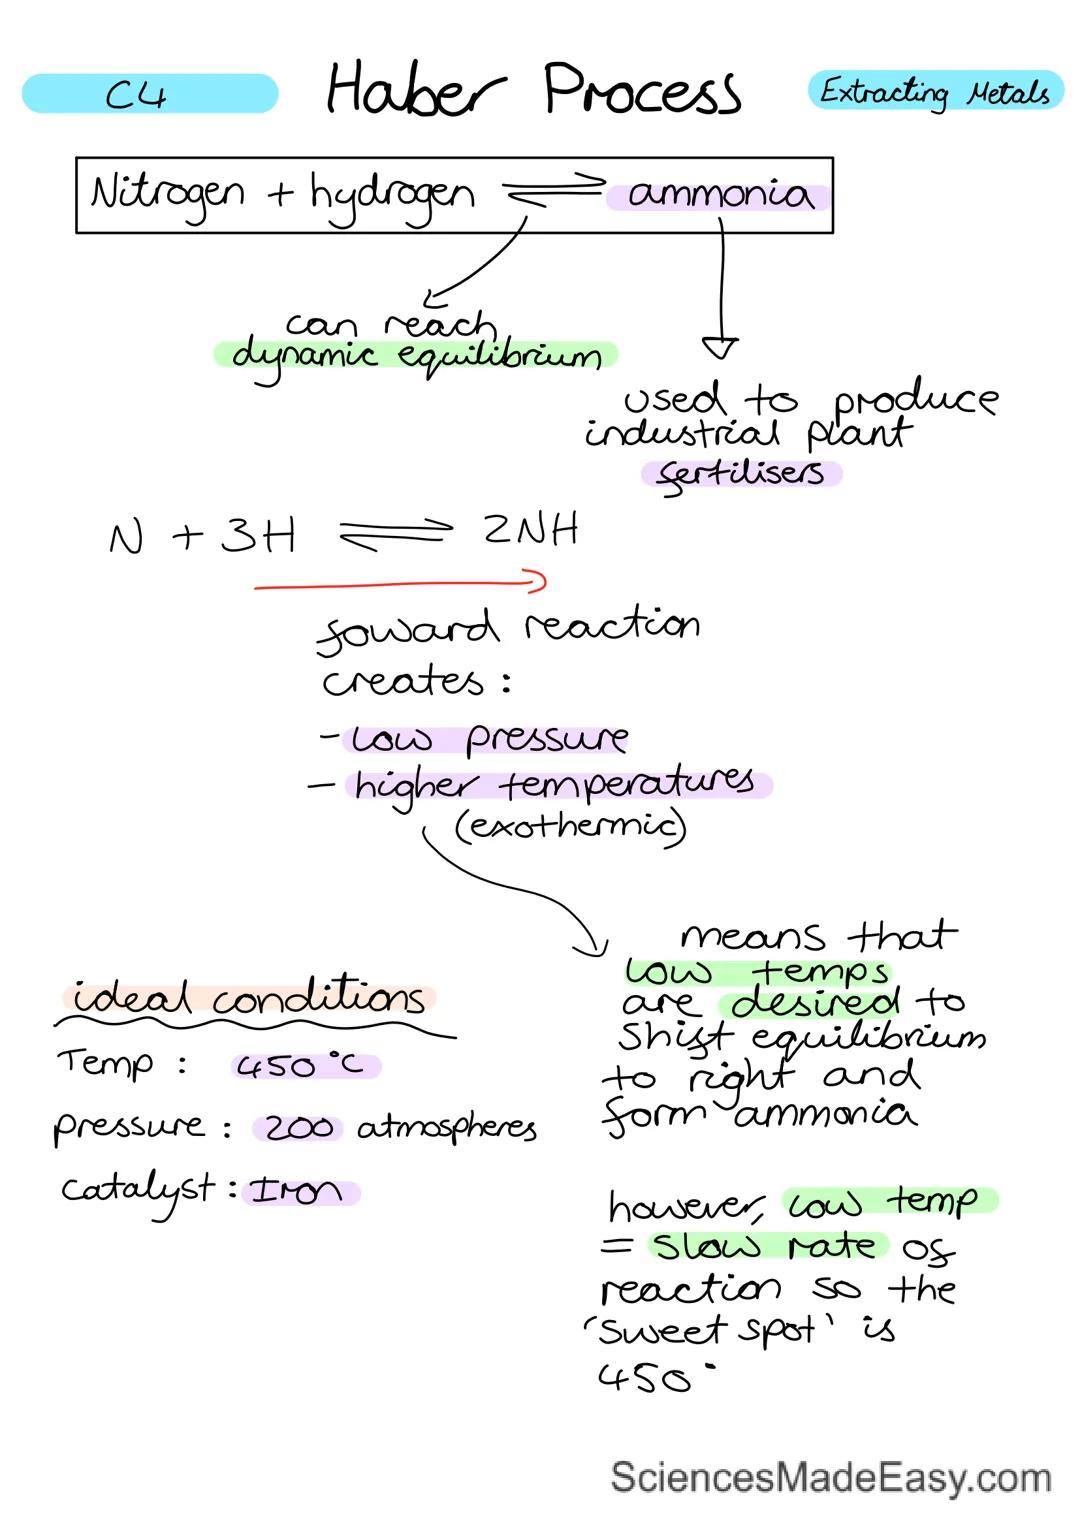 C4
Haber Process
Extracting Metals
Nitrogen + hydrogen ⇌ ammonia
can reach
dynamic equilibrium
used to produce
industrial plant
fertilisers
N + 3H ⇌ 2NH
foward reaction
creates :
- low pressure
- higher temperatures
(exothermic)
means that
low temps
are desired to
shift equilibrium
to right and
form ammonia
ideal conditions
Temp : 450°C
pressure : 200 atmospheres
catalyst : Iron
however, low temp
= slow rate of
reaction so the
'sweet spot' is
450°
SciencesMadeEasy.com